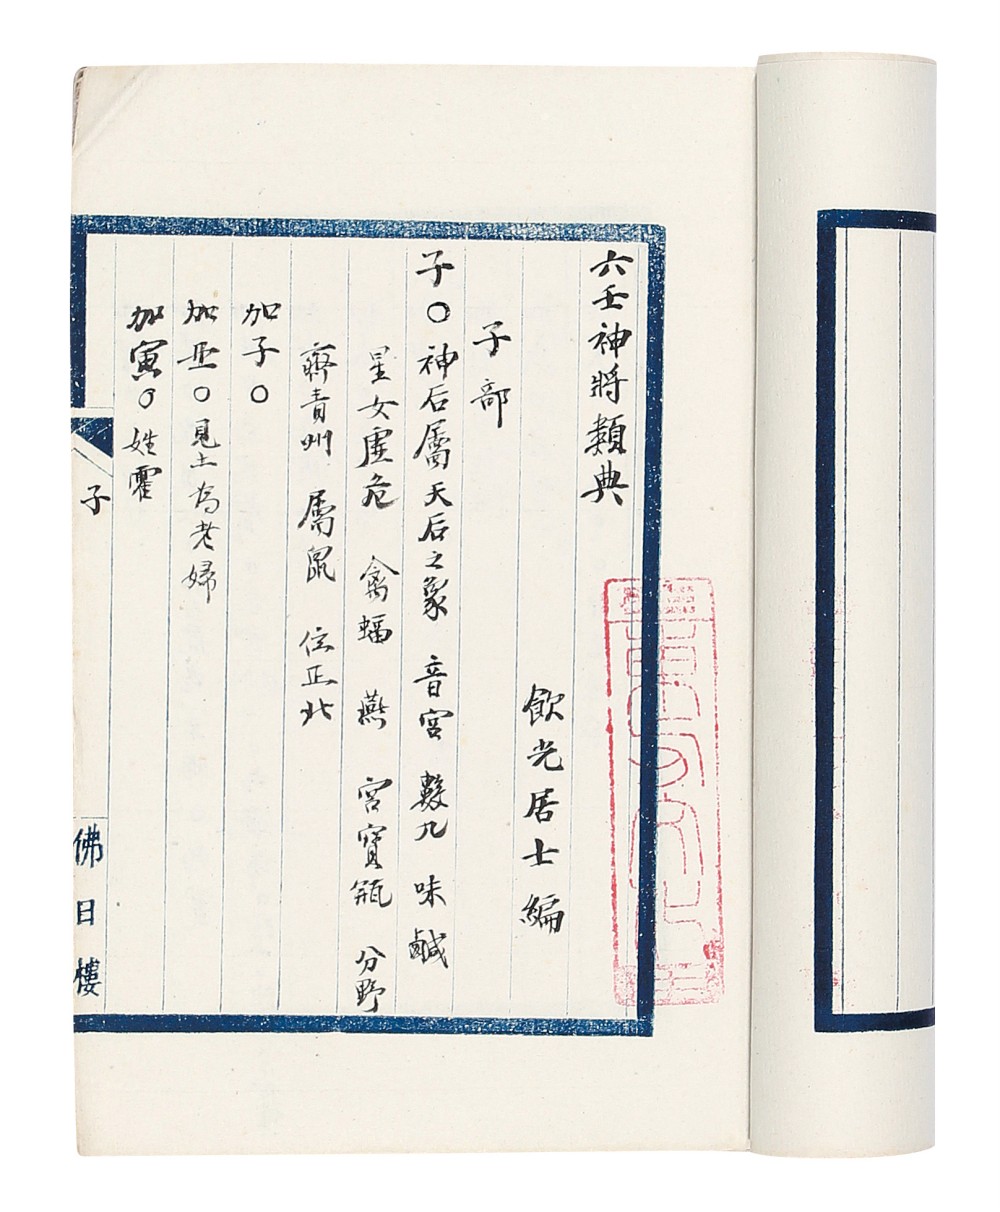 六壬神將類典
飲光居士編
子部
子○神后屬天后之象 音宮 數九 味鹹
星女虛危 禽蝠 燕 宮寶瓶 分野
齊青州 屬鼠 位正北
加子○
加丑○見土為老婦
加寅○姓霍
子
佛日樓